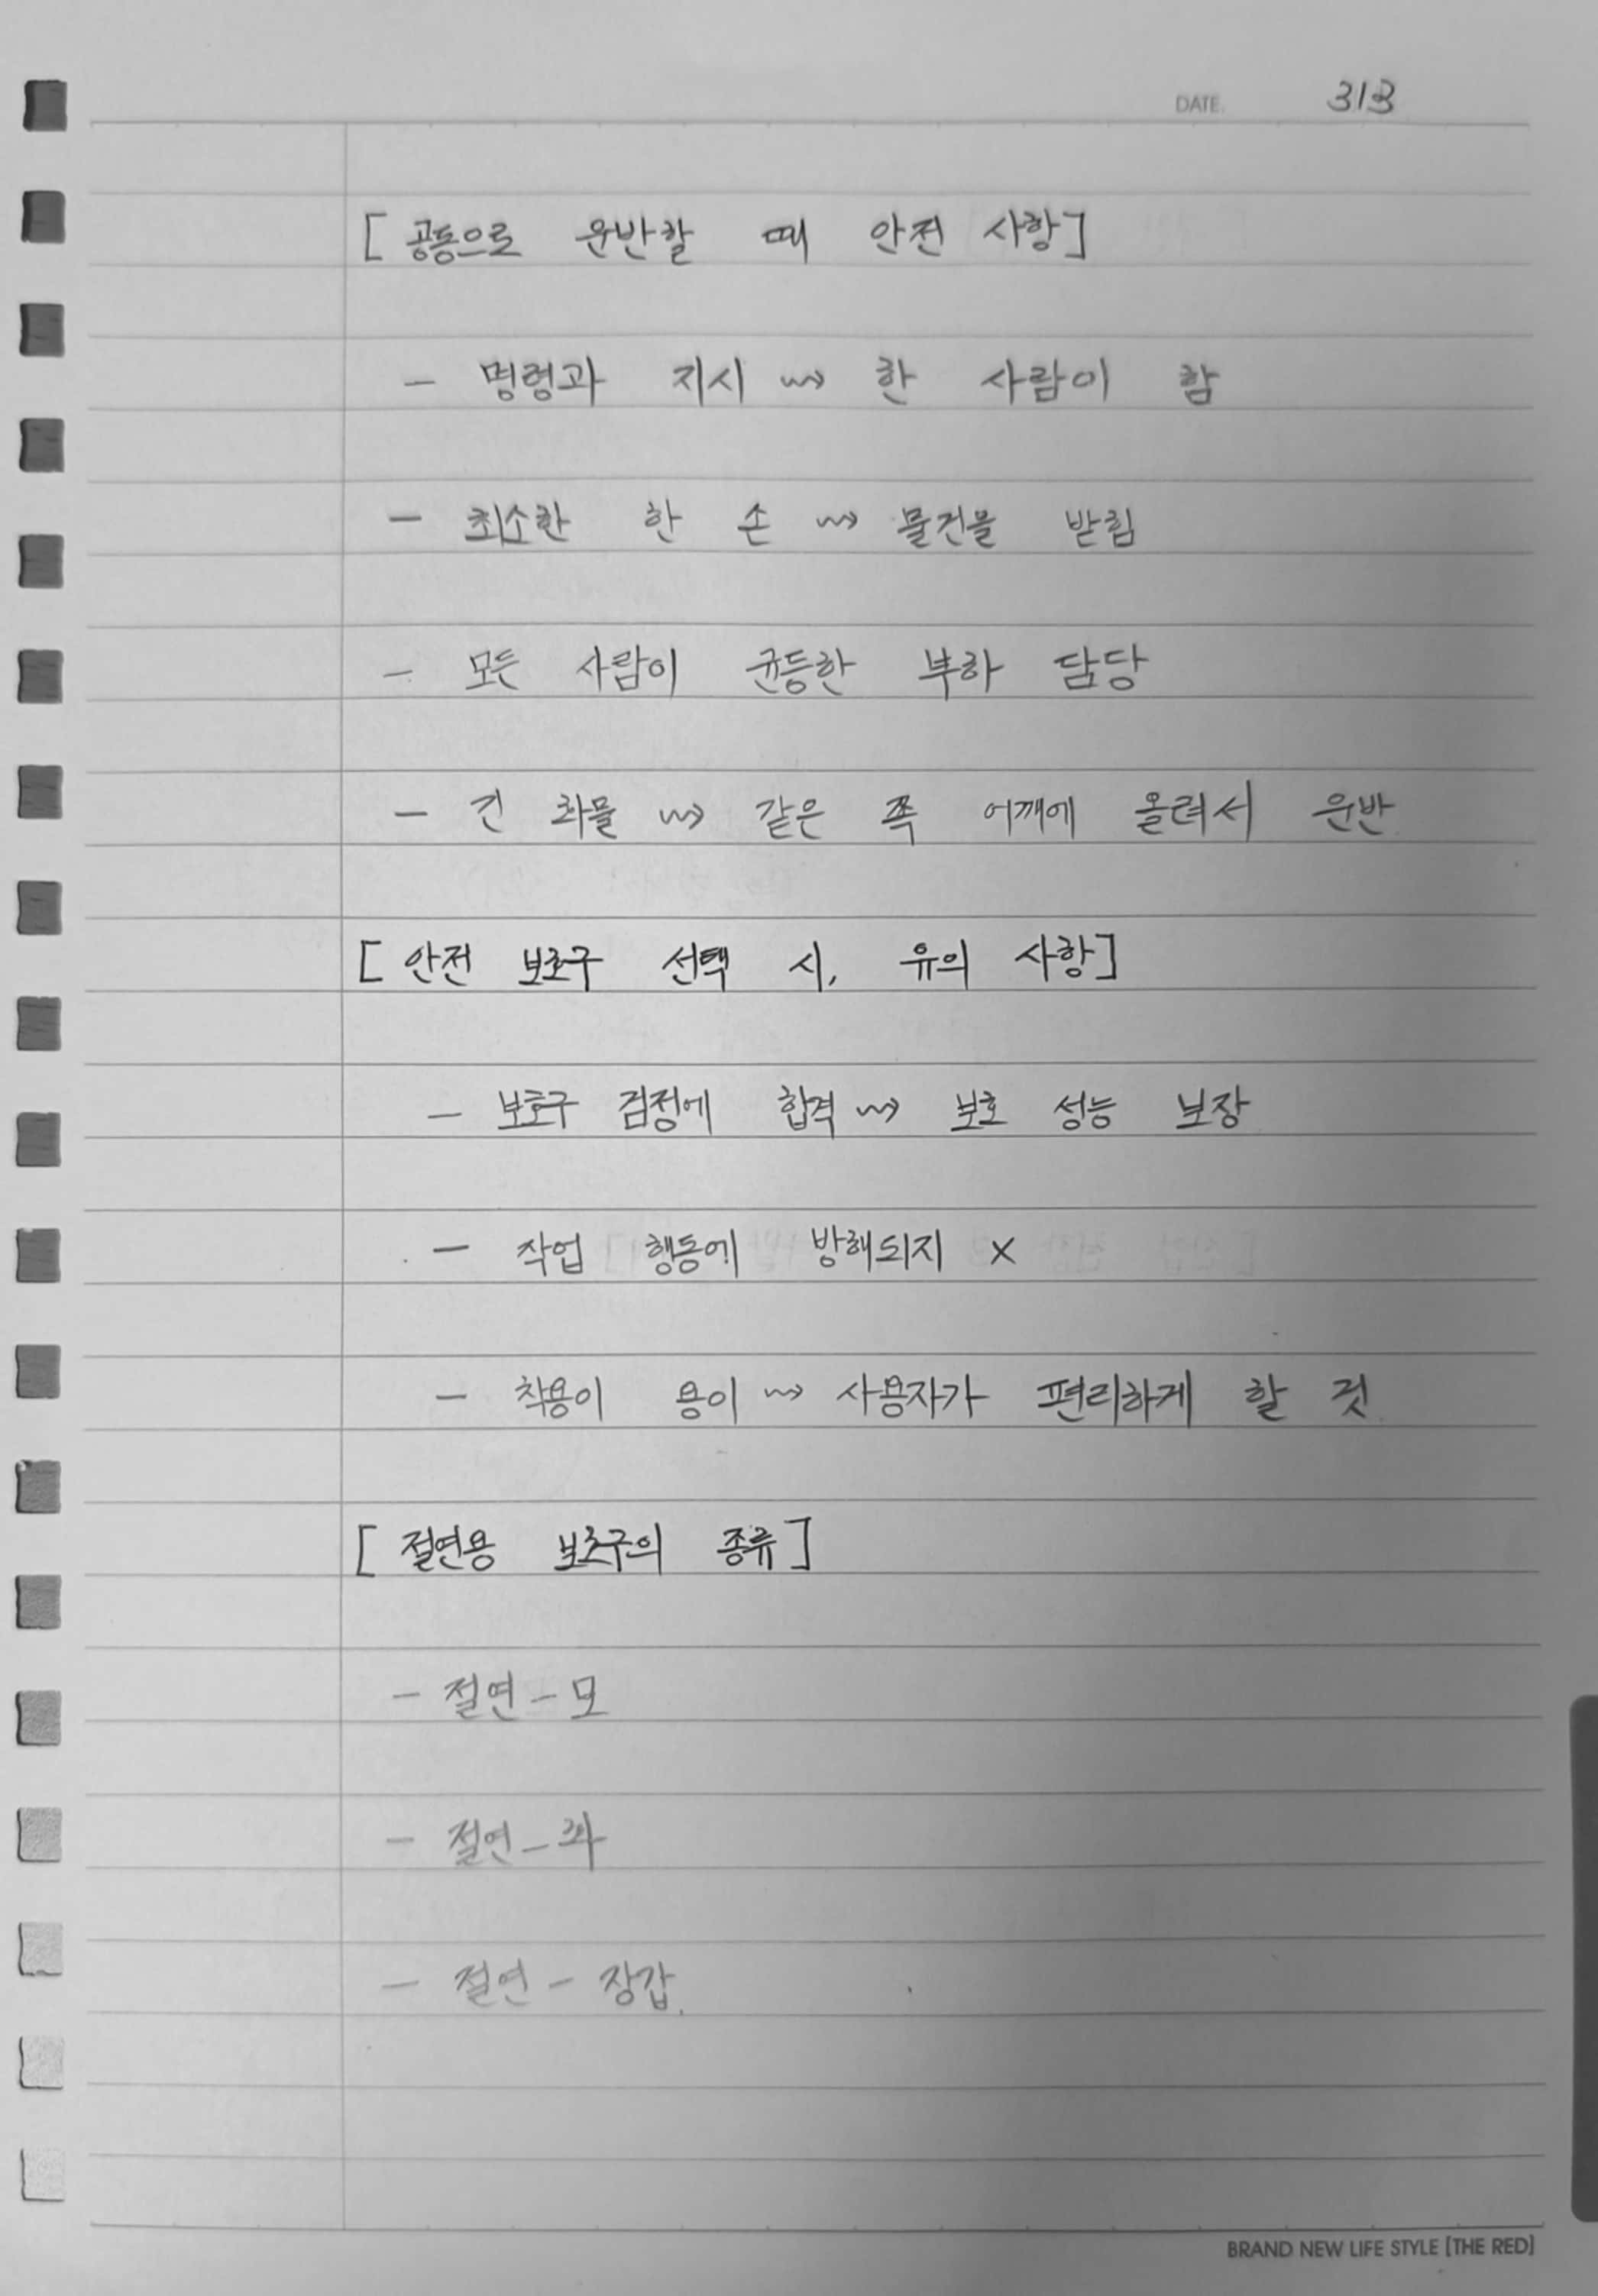 DATE. 313
[공동으로 운반할 때 안전 사항]
- 명령과 지시 ⇝ 한 사람이 함
- 최소한 한 손 ⇝ 물건을 받침
- 모든 사람이 균등한 부하 담당
- 긴 화물 ⇝ 같은 쪽 어깨에 올려서 운반
[안전 보호구 선택 시, 유의 사항]
- 보호구 검정에 합격 ⇝ 보호 성능 보장
- 작업 행동에 방해되지 ×
- 착용이 용이 ⇝ 사용자가 편리하게 할 것
[절연용 보호구의 종류]
- 절연-모
- 절연-화
- 절연-장갑.
BRAND NEW LIFE STYLE [THE RED]